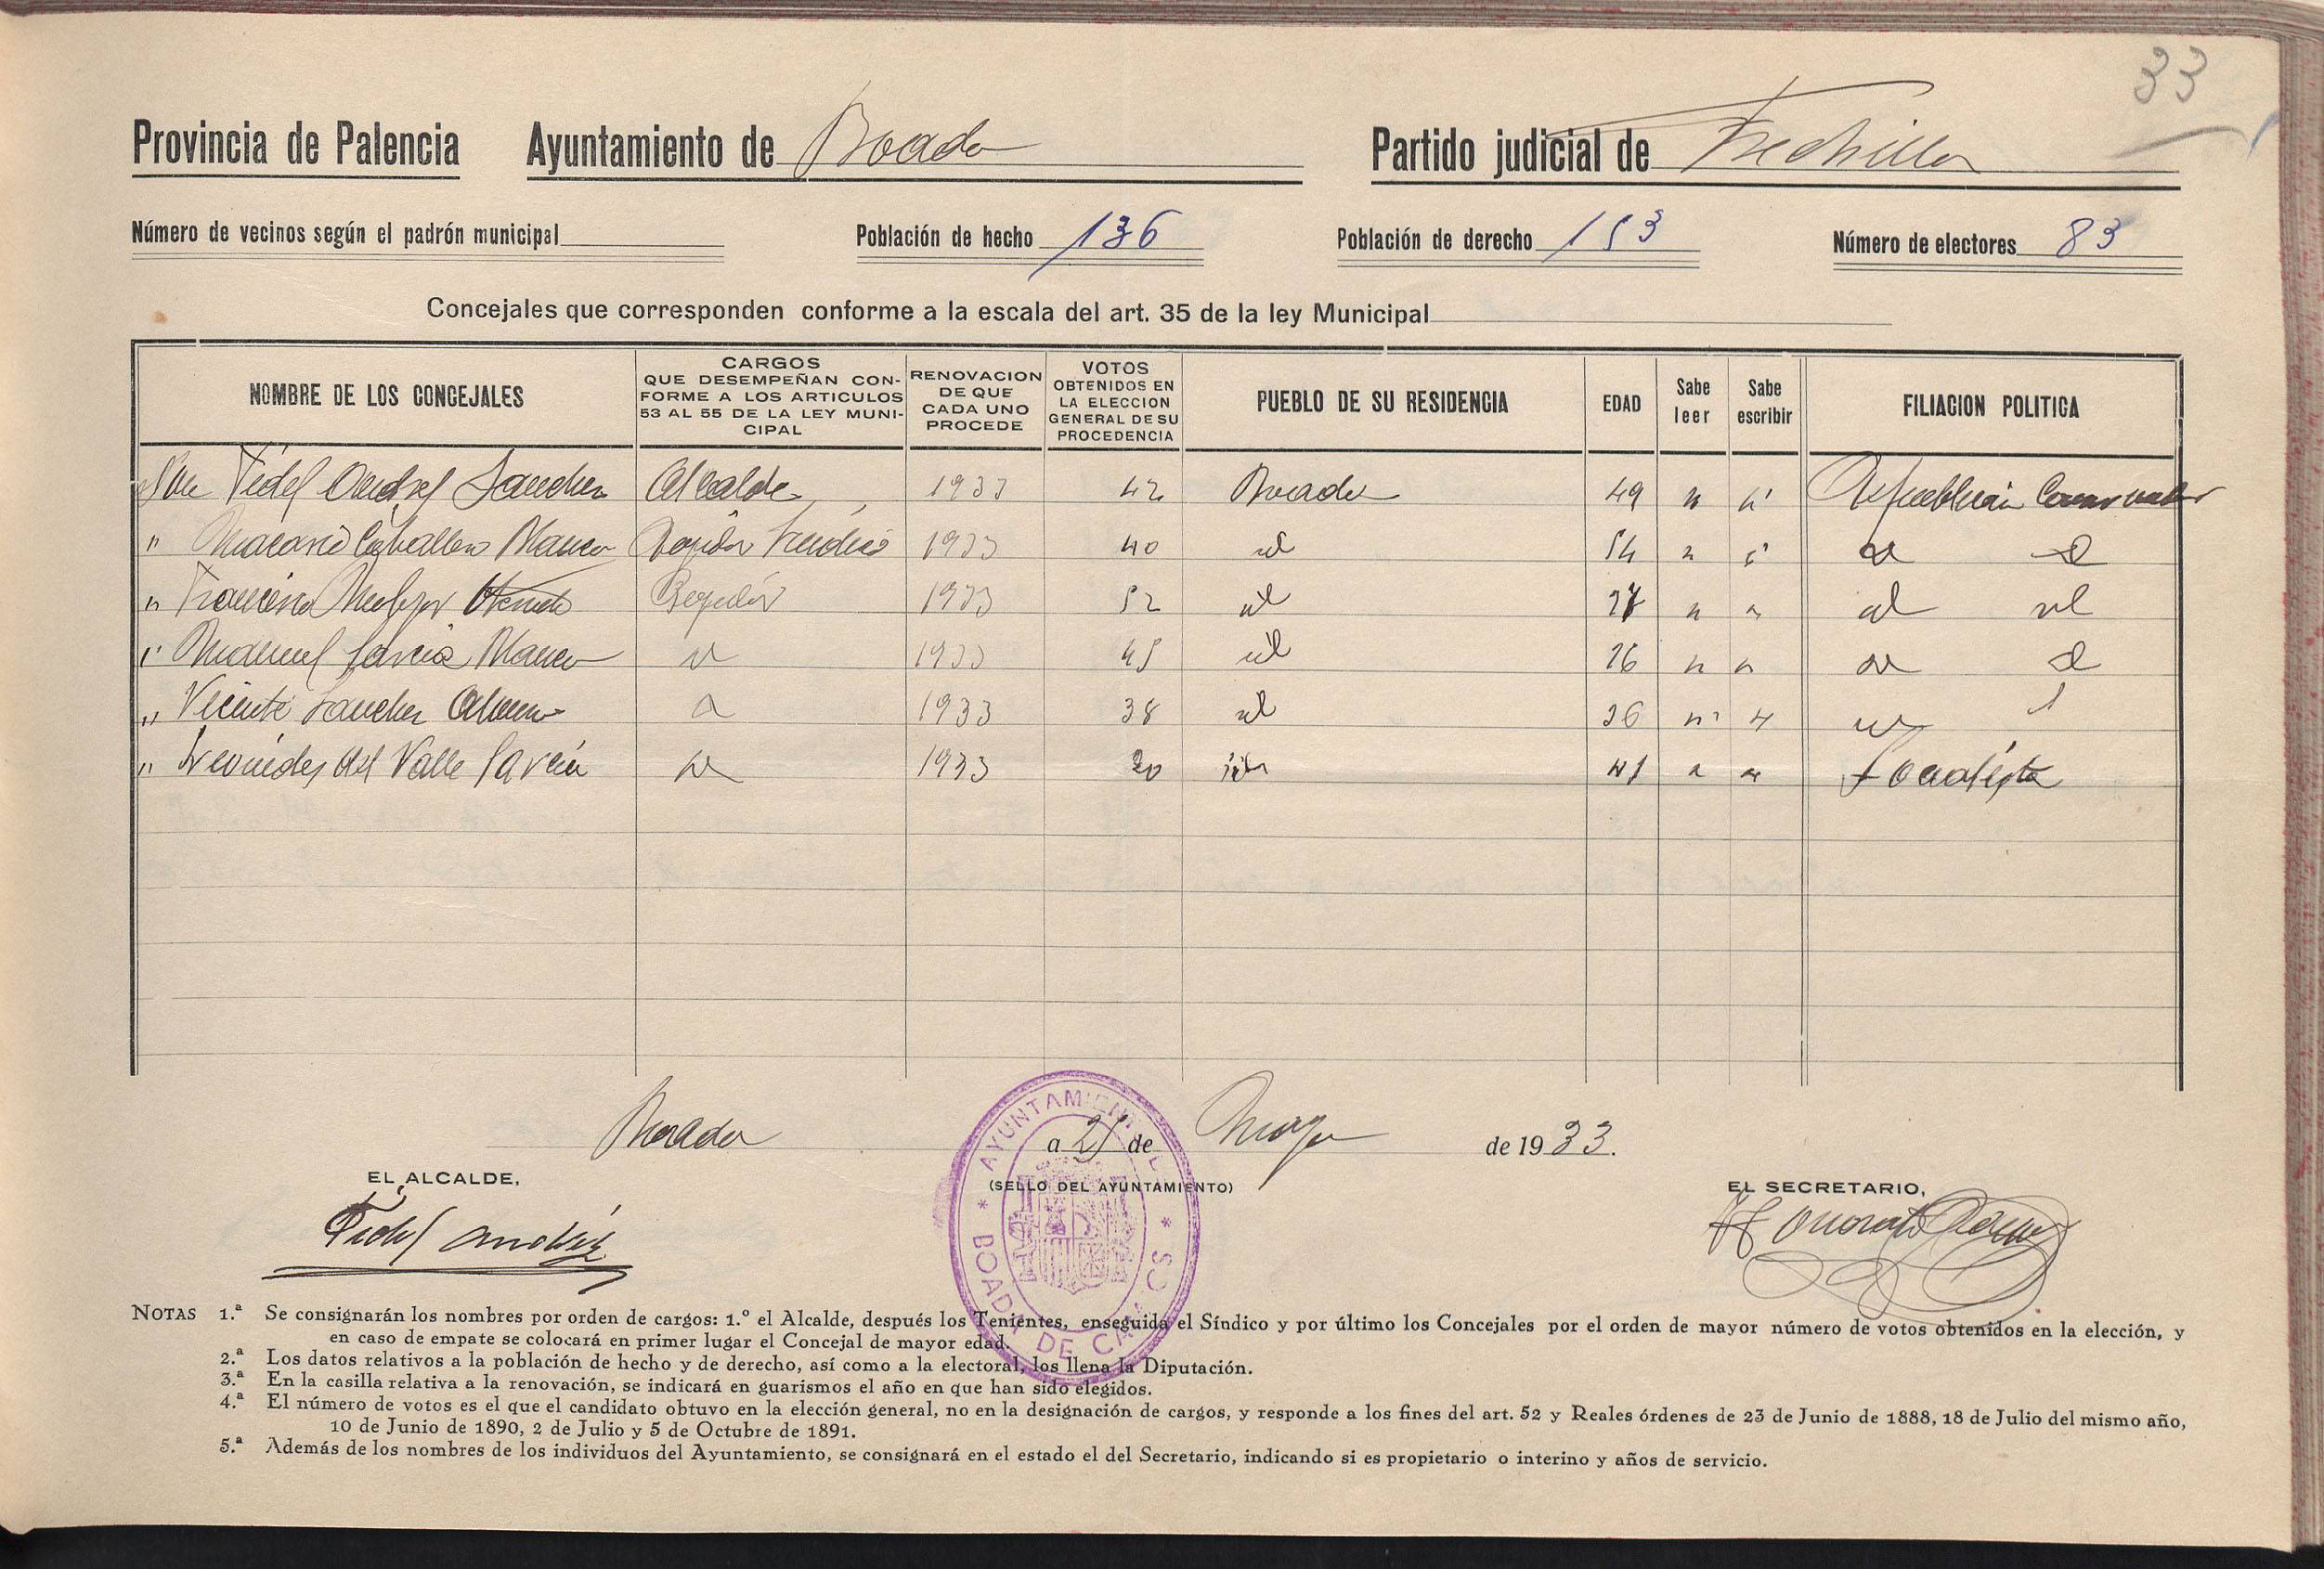 33
Provincia de Palencia Ayuntamiento de Boada Partido judicial de Frechilla
Número de vecinos según el padrón municipal Población de hecho 136 Población de derecho 153 Número de electores 83
Concejales que corresponden conforme a la escala del art. 35 de la ley Municipal
NOMBRE DE LOS CONCEJALES CARGOS QUE DESEMPEÑAN CONFORME A LOS ARTICULOS 53 AL 55 DE LA LEY MUNICIPAL RENOVACION DE QUE CADA UNO PROCEDE VOTOS OBTENIDOS EN LA ELECCION GENERAL DE SU PROCEDENCIA PUEBLO DE SU RESIDENCIA EDAD Sabe leer Sabe escribir FILIACION POLITICA
Don Fidel Andrés Sanchez Alcalde 1933 42 Boada 49 si si Republicano Conservador
" Macario Caballero Blanco Regidor Sindico 1933 40 id 54 " " id id
" Francisco Regidor 1933 52 id " " id id
" Manuel García Blanco id 1933 45 id 36 " " id id
" Vicente Sanchez id 1933 38 id 36 " " id id
" Leonides del Valle García id 1933 20 id 41 " " Socialista
Boada a 25 de Mayo de 1933.
EL ALCALDE, (SELLO DEL AYUNTAMIENTO) EL SECRETARIO,
Fidel Andrés
AYUNTAMIENTO
BOADA DE CAMPOS
NOTAS 1.ª Se consignarán los nombres por orden de cargos: 1.º el Alcalde, después los Tenientes, enseguida el Síndico y por último los Concejales por el orden de mayor número de votos obtenidos en la elección, y
en caso de empate se colocará en primer lugar el Concejal de mayor edad.
2.ª Los datos relativos a la población de hecho y de derecho, así como a la electoral, los llena la Diputación.
3.ª En la casilla relativa a la renovación, se indicará en guarismos el año en que han sido elegidos.
4.ª El número de votos es el que el candidato obtuvo en la elección general, no en la designación de cargos, y responde a los fines del art. 52 y Reales órdenes de 23 de Junio de 1888, 18 de Julio del mismo año,
10 de Junio de 1890, 2 de Julio y 5 de Octubre de 1891.
5.ª Además de los nombres de los individuos del Ayuntamiento, se consignará en el estado el del Secretario, indicando si es propietario o interino y años de servicio.